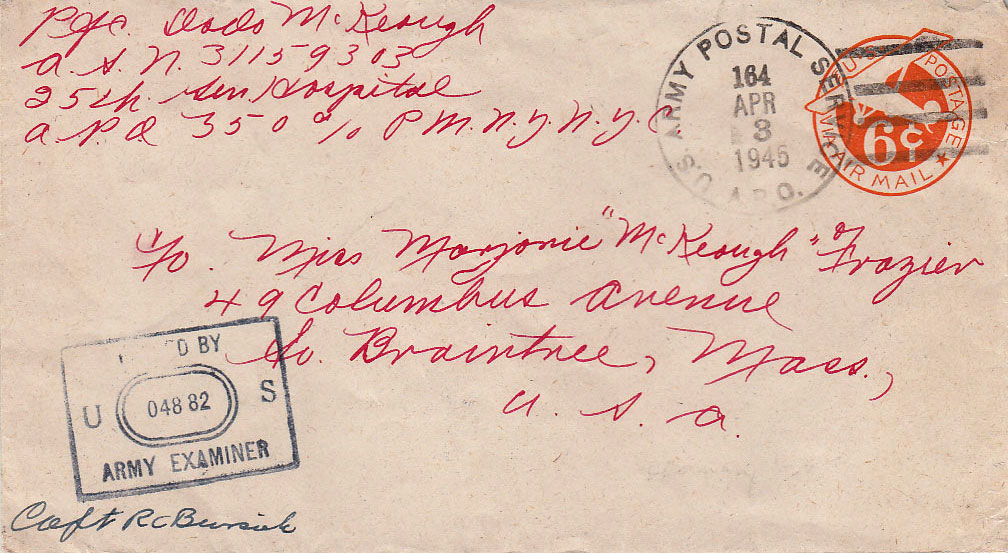 Pfc. Dodo McKeough
a. S. N. 31159303
25th. Gen. Hospital
a. P. O 350 c/o P. M. N. Y. N. Y.
ARMY POSTAL SERVICE
164
APR
3
1945
U.S. A.P.O.
U.S. POSTAGE
6¢
VIA AIR MAIL
To. Miss Marjorie "McKeough" Frazier
49 Columbus Avenue
So. Braintree, Mass.,
U. S. a.
BY
U 04882 S
ARMY EXAMINER
Capt RC